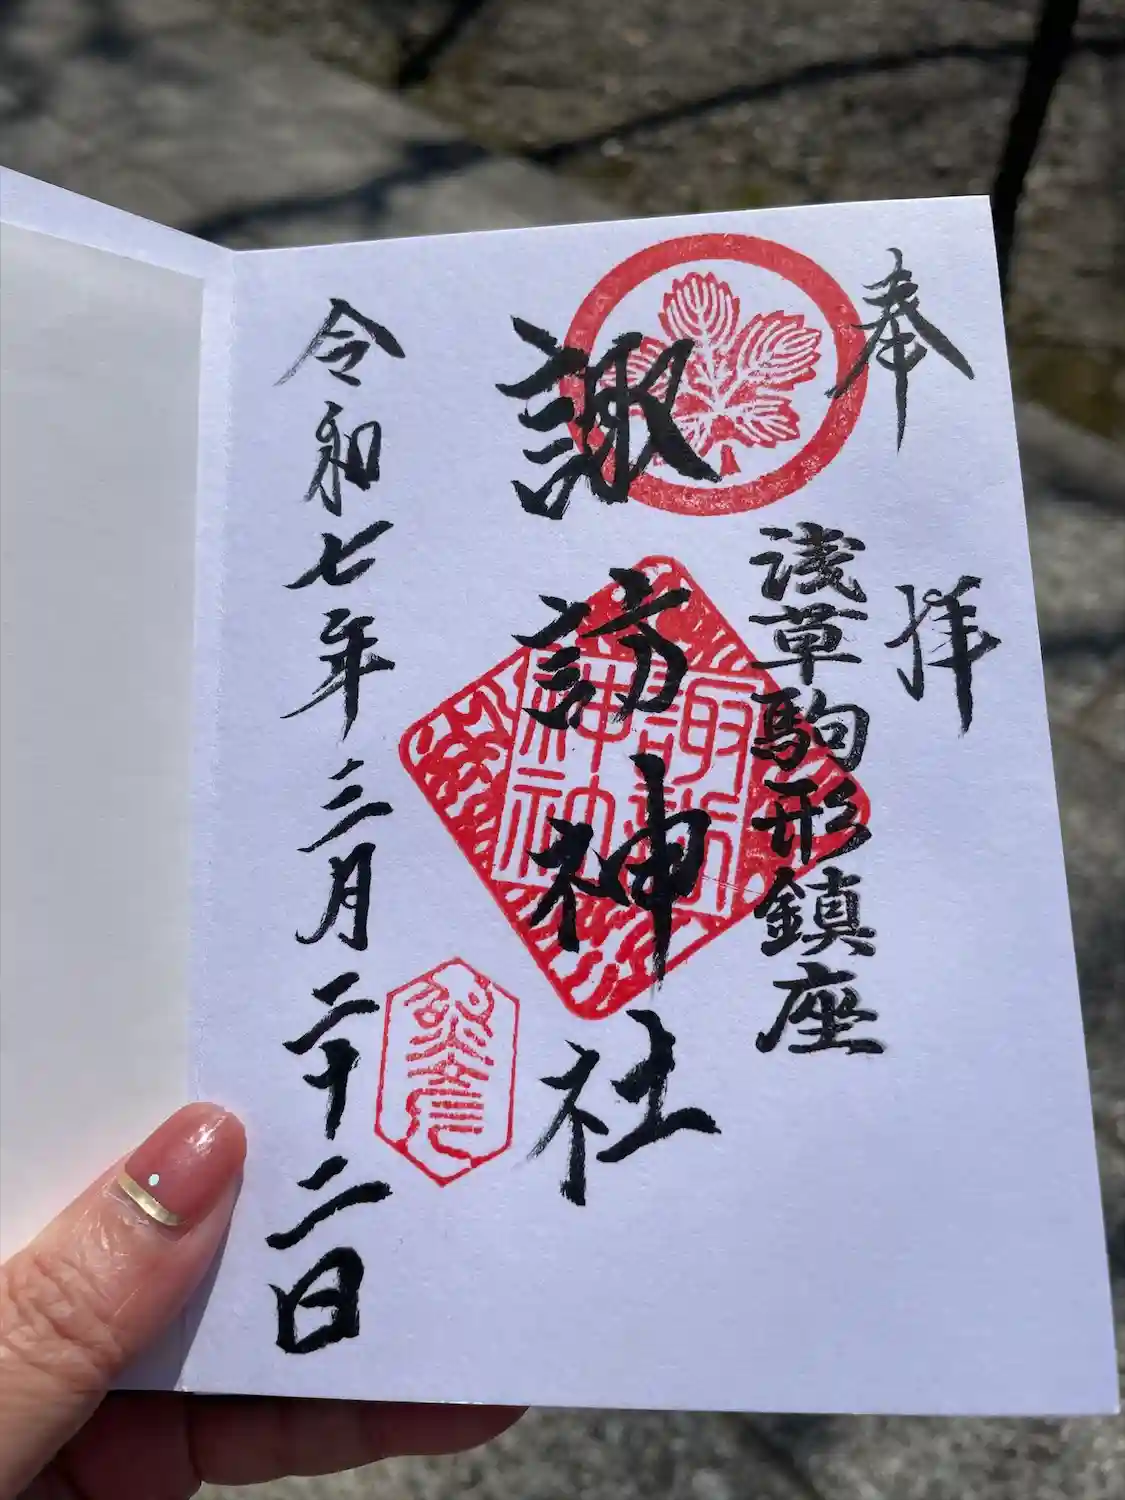 奉拝
浅草駒形鎮座
諏訪神社
諏訪神社
令和七年三月二十二日